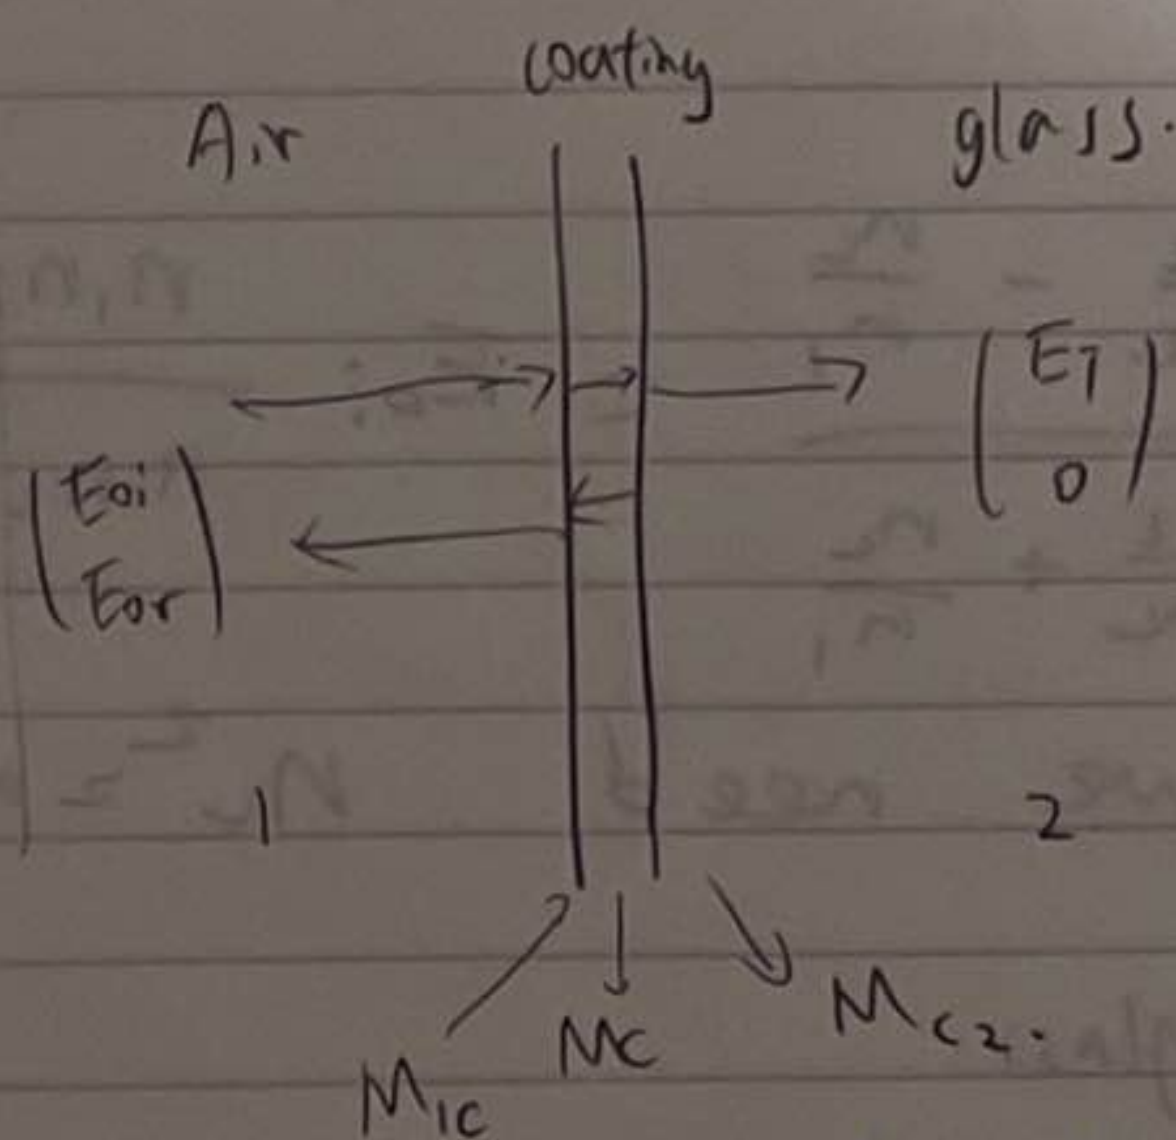 coating
Air
glass.
(E_T
0)
(E_oi
E_or)
1
2
M_1C
M_C
M_C2.